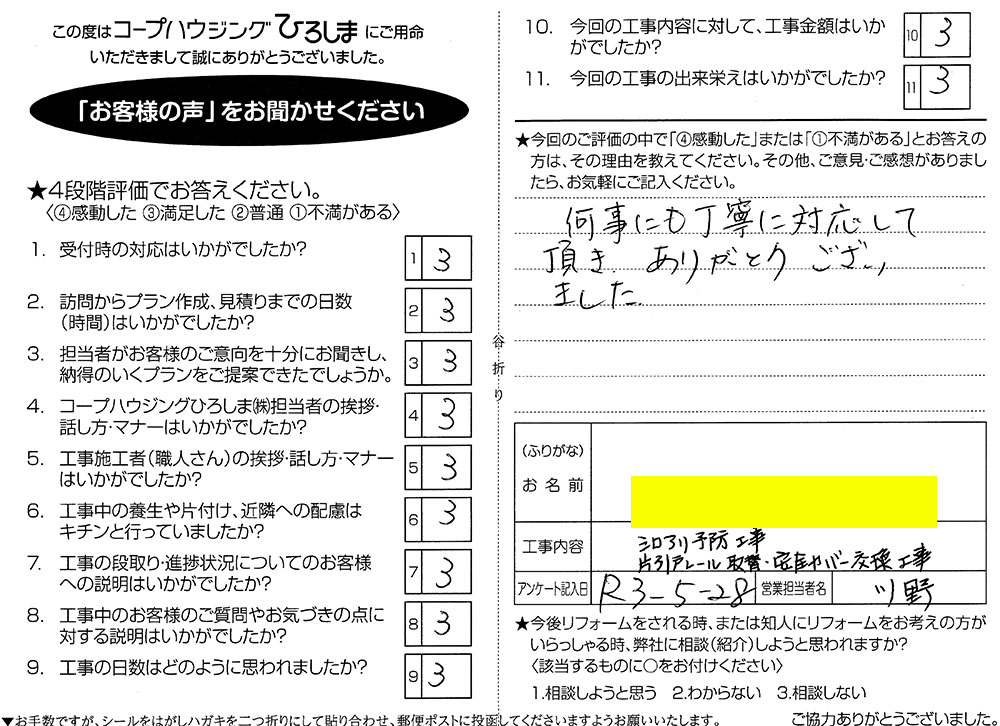 この度はコープハウジングひろしまにご用命
いただきまして誠にありがとうございました。
「お客様の声」をお聞かせください
★4段階評価でお答えください。
〈④感動した ③満足した ②普通 ①不満がある〉
1. 受付時の対応はいかがでしたか?
1 3
2. 訪問からプラン作成、見積りまでの日数
（時間）はいかがでしたか?
2 3
3. 担当者がお客様のご意向を十分にお聞きし、
納得のいくプランをご提案できたでしょうか。
3 3
4. コープハウジングひろしま㈱担当者の挨拶・
話し方・マナーはいかがでしたか?
4 3
5. 工事施工者（職人さん）の挨拶・話し方・マナー
はいかがでしたか?
5 3
6. 工事中の養生や片付け、近隣への配慮は
キチンと行っていましたか?
6 3
7. 工事の段取り・進捗状況についてのお客様
への説明はいかがでしたか?
7 3
8. 工事中のお客様のご質問やお気づきの点に
対する説明はいかがでしたか?
8 3
9. 工事の日数はどのように思われましたか?
9 3
▼お手数ですが、シールをはがしハガキを二つ折りにして貼り合わせ、郵便ポストに投函してくださいますようお願いいたします。
谷折り
10. 今回の工事内容に対して、工事金額はいか
がでしたか?
10 3
11. 今回の工事の出来栄えはいかがでしたか?
11 3
★今回のご評価の中で「④感動した」または「①不満がある」とお答えの
方は、その理由を教えてください。その他、ご意見・ご感想がありまし
たら、お気軽にご記入ください。
何事にも丁寧に対応して
頂き ありがとう ござい
ました
（ふりがな）
お名前
工事内容
シロアリ予防工事
片引アレール取替・便座カバー交換工事
アンケート記入日
R3-5-28
営業担当者名
川野
★今後リフォームをされる時、または知人にリフォームをお考えの方が
いらっしゃる時、弊社に相談（紹介）しようと思われますか?
〈該当するものに○をお付けください〉
1.相談しようと思う 2.わからない 3.相談しない
ご協力ありがとうございました。